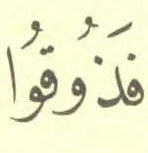 فَذُوقُوا